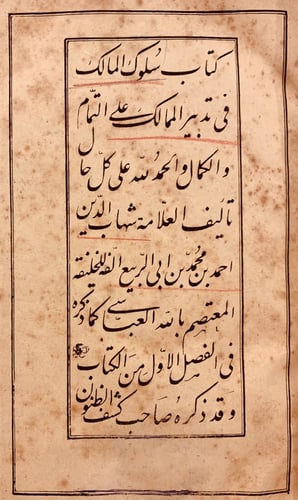 كتاب سلوك المالك
في تدبير الممالك على التمام
والكمال والحمد لله على كل حال
تاليف العلامة شهاب الدين
احمد بن محمد بن ابى الربيع الفه للخليفة
المعتصم بالله العباسي كما ذكره
في الفصل الاول من الكتاب
وقد ذكره صاحب كشف الظنون